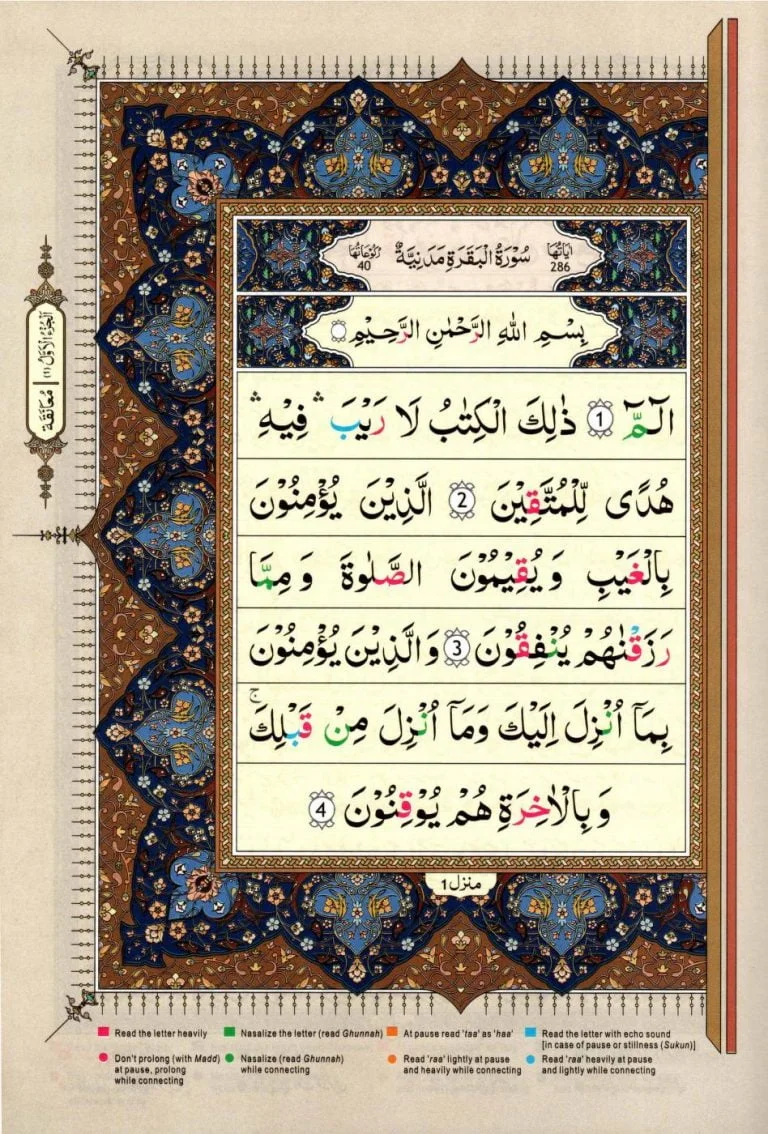 اٰيَاتُهَا 286 سُوْرَةُ الْبَقَرَةِ مَدَنِيَّةٌ رُكُوْعَاتُهَا 40
بِسْمِ اللّٰهِ الرَّحْمٰنِ الرَّحِيْمِ
الٓمّٓ 1 ذٰلِكَ الْكِتٰبُ لَا رَيْبَ ۛ فِيْهِ ۛ
هُدًى لِّلْمُتَّقِيْنَ 2 الَّذِيْنَ يُؤْمِنُوْنَ
بِالْغَيْبِ وَيُقِيْمُوْنَ الصَّلٰوةَ وَمِمَّا
رَزَقْنٰهُمْ يُنْفِقُوْنَ 3 وَالَّذِيْنَ يُؤْمِنُوْنَ
بِمَاۤ اُنْزِلَ اِلَيْكَ وَمَاۤ اُنْزِلَ مِنْ قَبْلِكَ ۚ
وَبِالْاٰخِرَةِ هُمْ يُوْقِنُوْنَ 4
منزل 1
اَلْجُزْءُ الْاَوَّلُ (١) | مُعَانَقَة
Read the letter heavily
Nasalize the letter (read Ghunnah)
At pause read 'taa' as 'haa'
Read the letter with echo sound
[in case of pause or stillness (Sukun)]
Don't prolong (with Madd)
at pause, prolong
while connecting
Nasalize (read Ghunnah)
while connecting
Read 'raa' lightly at pause
and heavily while connecting
Read 'raa' heavily at pause
and lightly while connecting